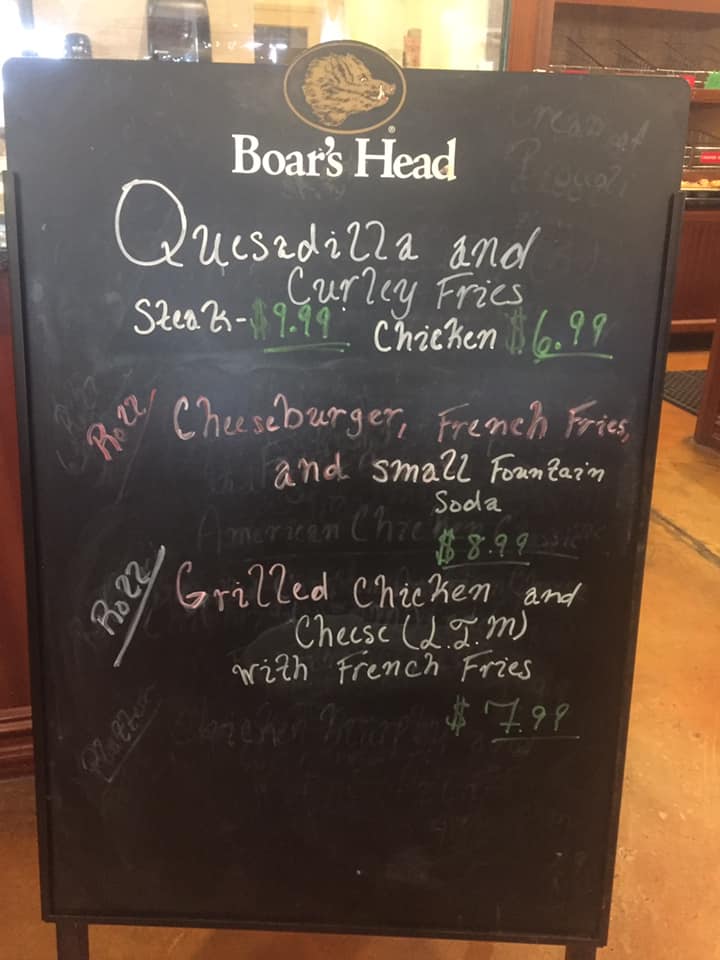 Boar's Head
Quesadilla and
Curley Fries
Steak- $9.99 Chicken $6.99
Roll/ Cheeseburger, French Fries,
and small Fountain
Soda
$8.99
Roll/ Grilled Chicken and
Cheese (L.T.M)
with French Fries
$7.99
American Chicken
Platter